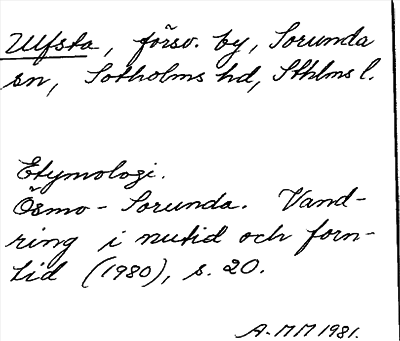 Ulfsta, försv. by, Sorunda
sn, Sotholms hd, Sthlms l.
Etymologi.
Ösmo - Sorunda. Vand-
ring i nutid och forn-
tid (1980), s. 20.
A. MM 1981.